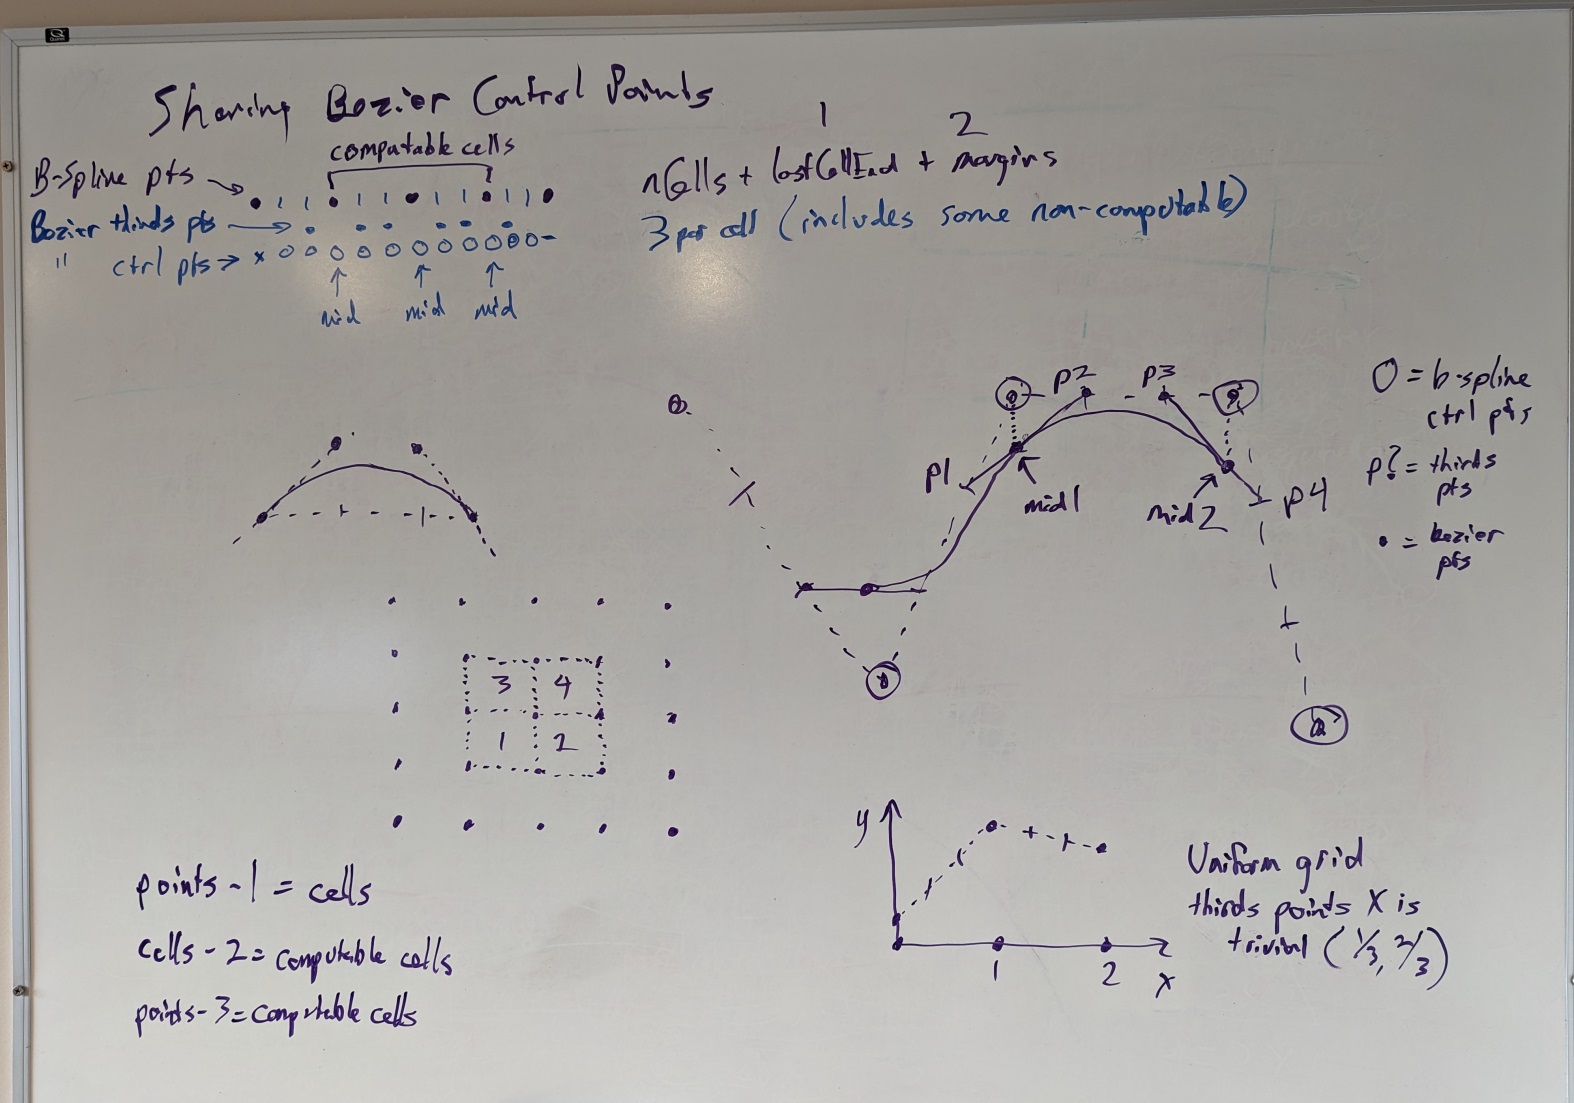 Sharing Bezier Control Points
computable cells
B-Spline pts
Bezier thirds pts
" ctrl pts
mid mid mid
1 2
nCells + lastCellEnd + margins
3 per cell (includes some non-computable)
p1
p2
p3
p4
mid1
mid2
O = b-spline
ctrl pts
p? = thirds
pts
• = bezier
pts
3 4
1 2
points - 1 = cells
cells - 2 = computable cells
points - 3 = computable cells
y
1 2 x
Uniform grid
thirds points X is
trivial (1/3, 2/3)